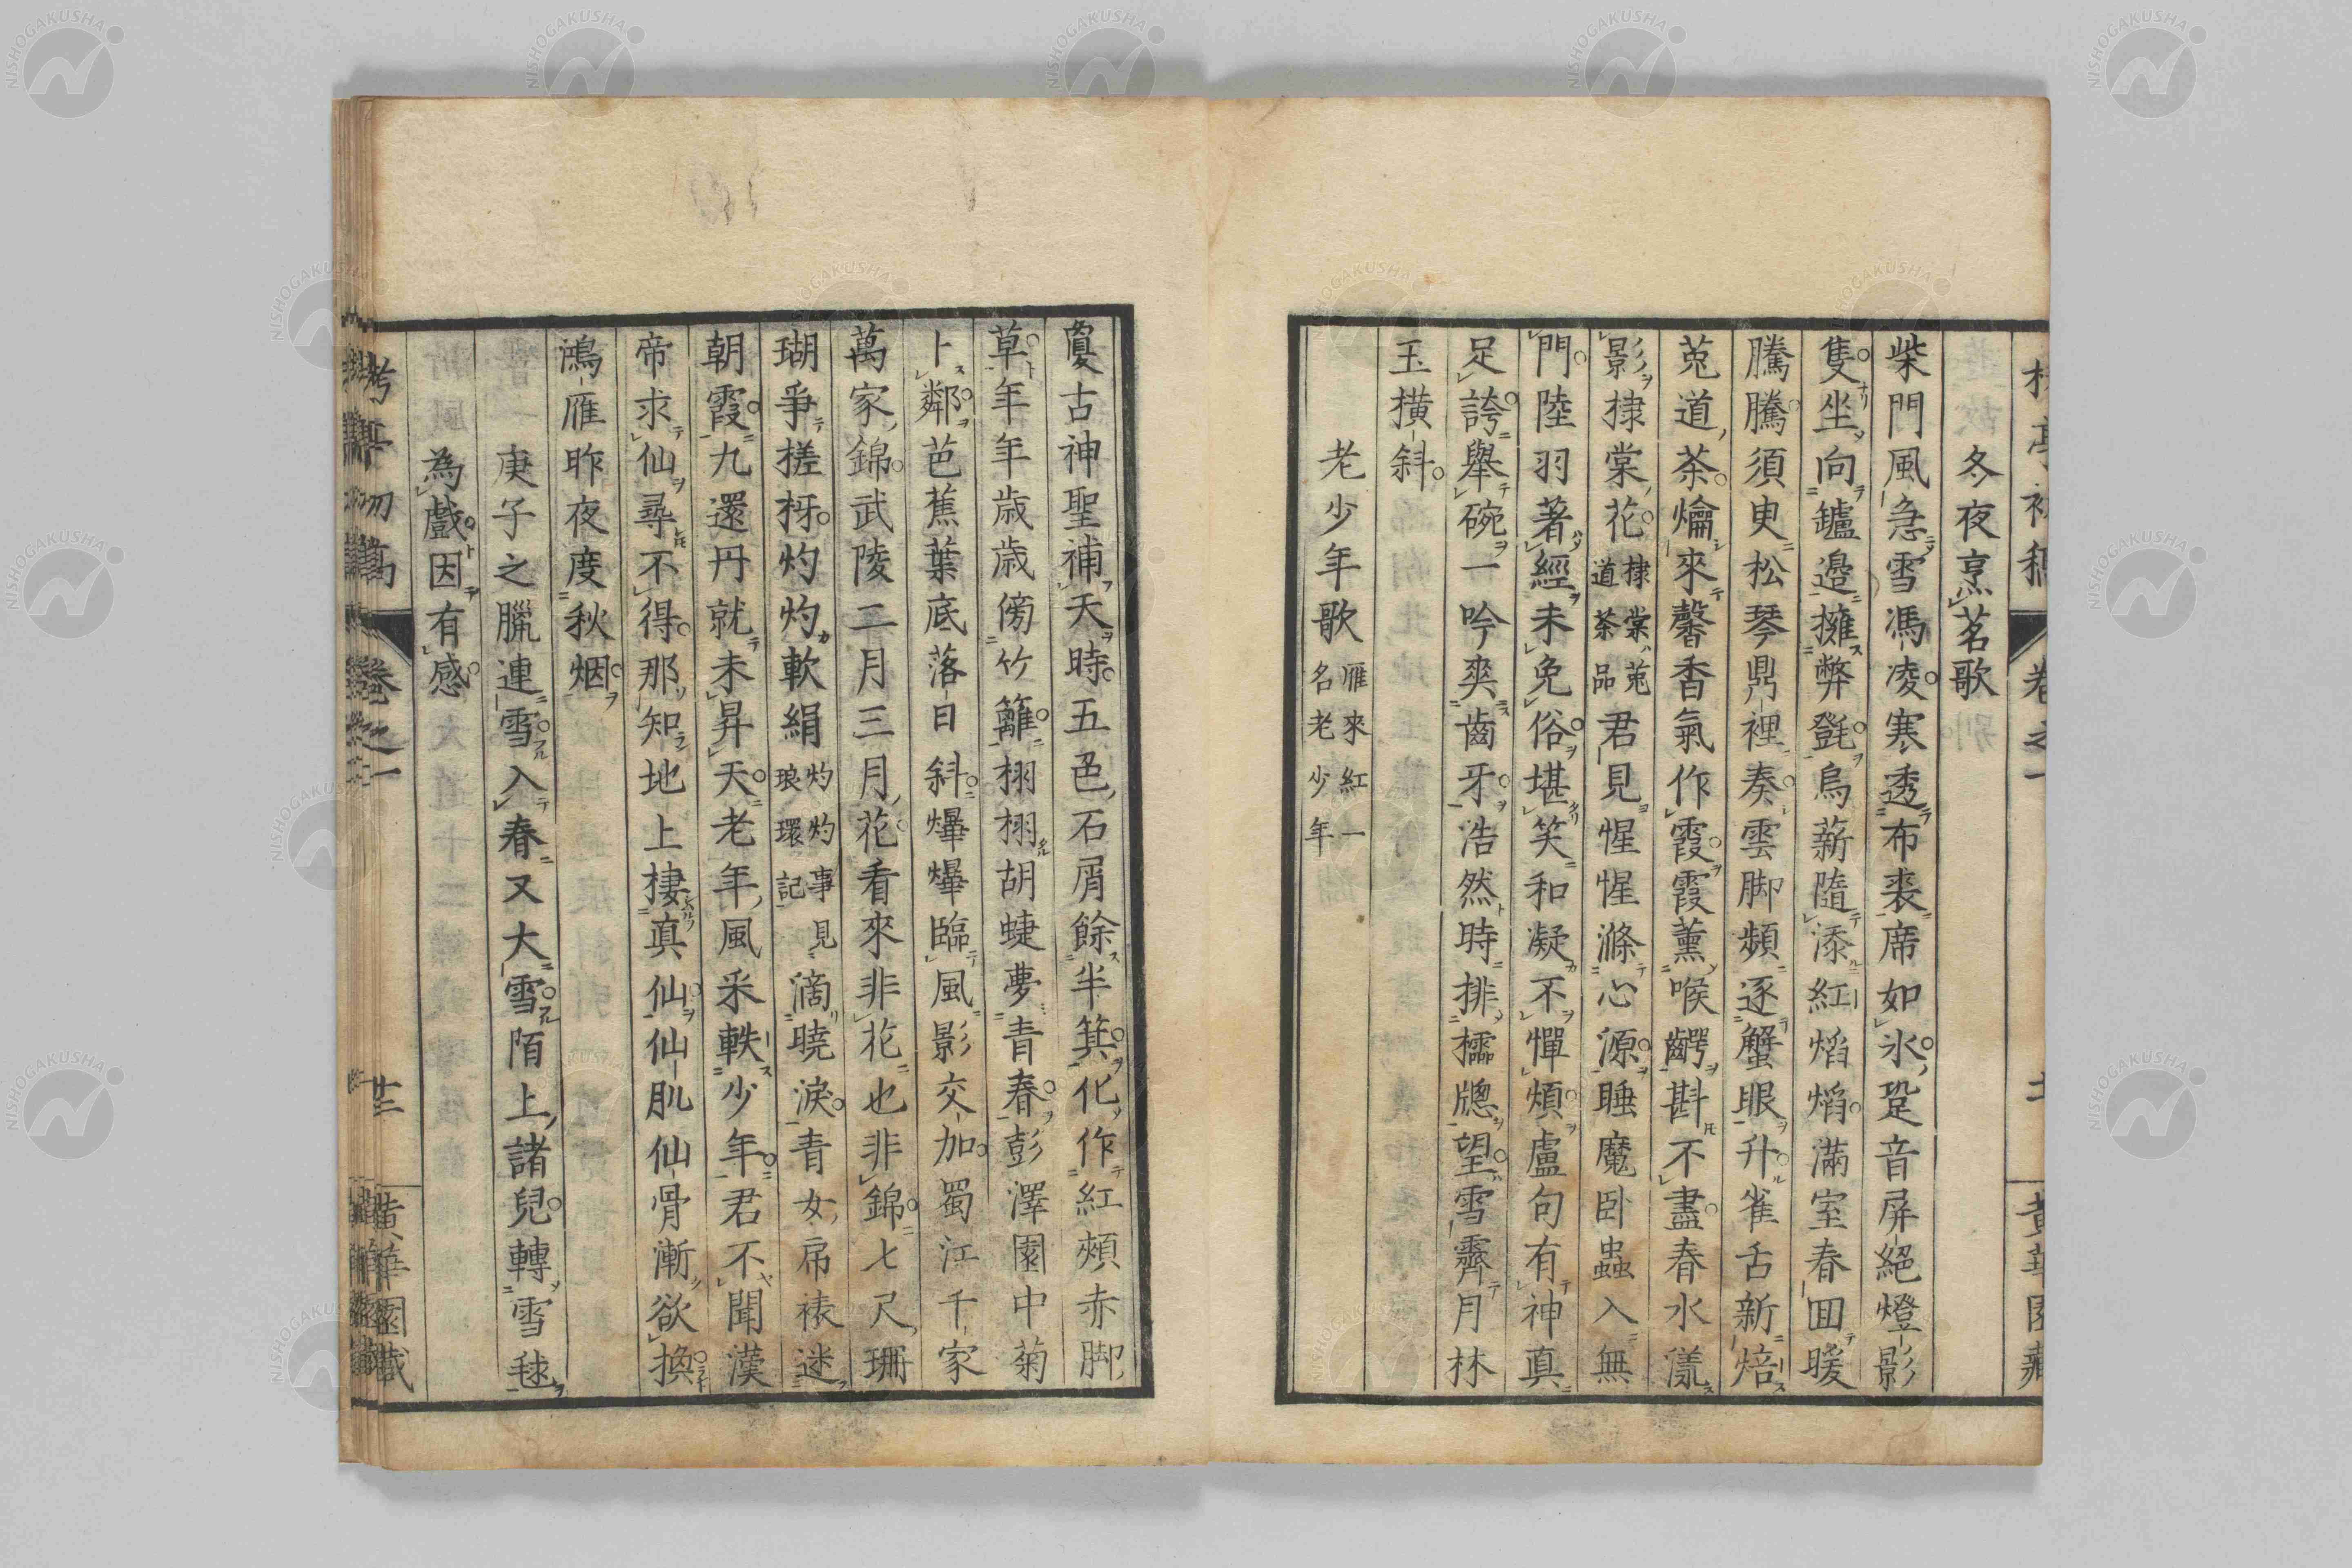 冬夜烹茗歌
柴門風急雪馮凌寒透布裘席如氷跫音屏絕燈影
隻坐向鑪邉擁弊㲪烏薪隨添紅熖熖滿室春囬暖
騰騰須臾松琴鼎裡奏雲脚頻逐蟹眼升雀舌新焙
菟道茶爚來馨香氣作霞霞薰喉齶斟不盡春水漾
影棣棠花棣棠菟道茶品君見惺惺滌心源睡魔卧蟲入無
門陸羽著經未免俗堪笑和凝不憚煩盧句有神真
足誇舉碗一吟爽齒牙浩然時排櫺牕望雪霽月林
玉撗斜
老少年歌雁來紅一名老少年
敻古神聖補天時五色石屑餘半箕化作紅頰赤脚
草年年歲歲傍竹籬栩栩胡蜨夢青春彭澤園中菊
卜鄰芭蕉葉底落日斜熚熚臨風影交加蜀江千家
萬家錦武陵二月三月花看來非花也非錦七尺珊
瑚爭搓枒灼灼軟絹灼灼事見琅環記滴曉淚青女帍裱迷
朝霞九還丹就未昇天老年風采軼少年君不聞漢
帝求仙尋不得那知地上棲真仙仙肌仙骨漸欲換
鴻雁昨夜度秋烟
庚子之臘連雪入春又大雪陌上諸兒轉雪毬
為戲因有感
卷之一
黃華園藏